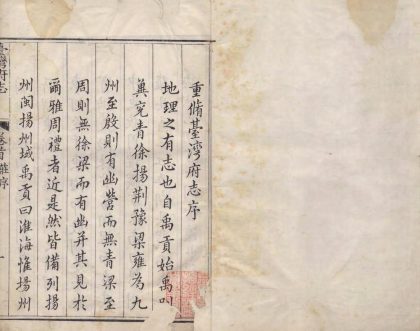 重脩臺灣府志序
地理之有志也自禹貢始禹叫
兾兗青徐揚荆豫梁雍為九
州至殷則有幽營而無青梁至
周則無徐梁而有幽并其見於
爾雅周禮者近是然皆備列揚
州閩揚州域禹貢曰淮海惟揚州
臺灣府志
序